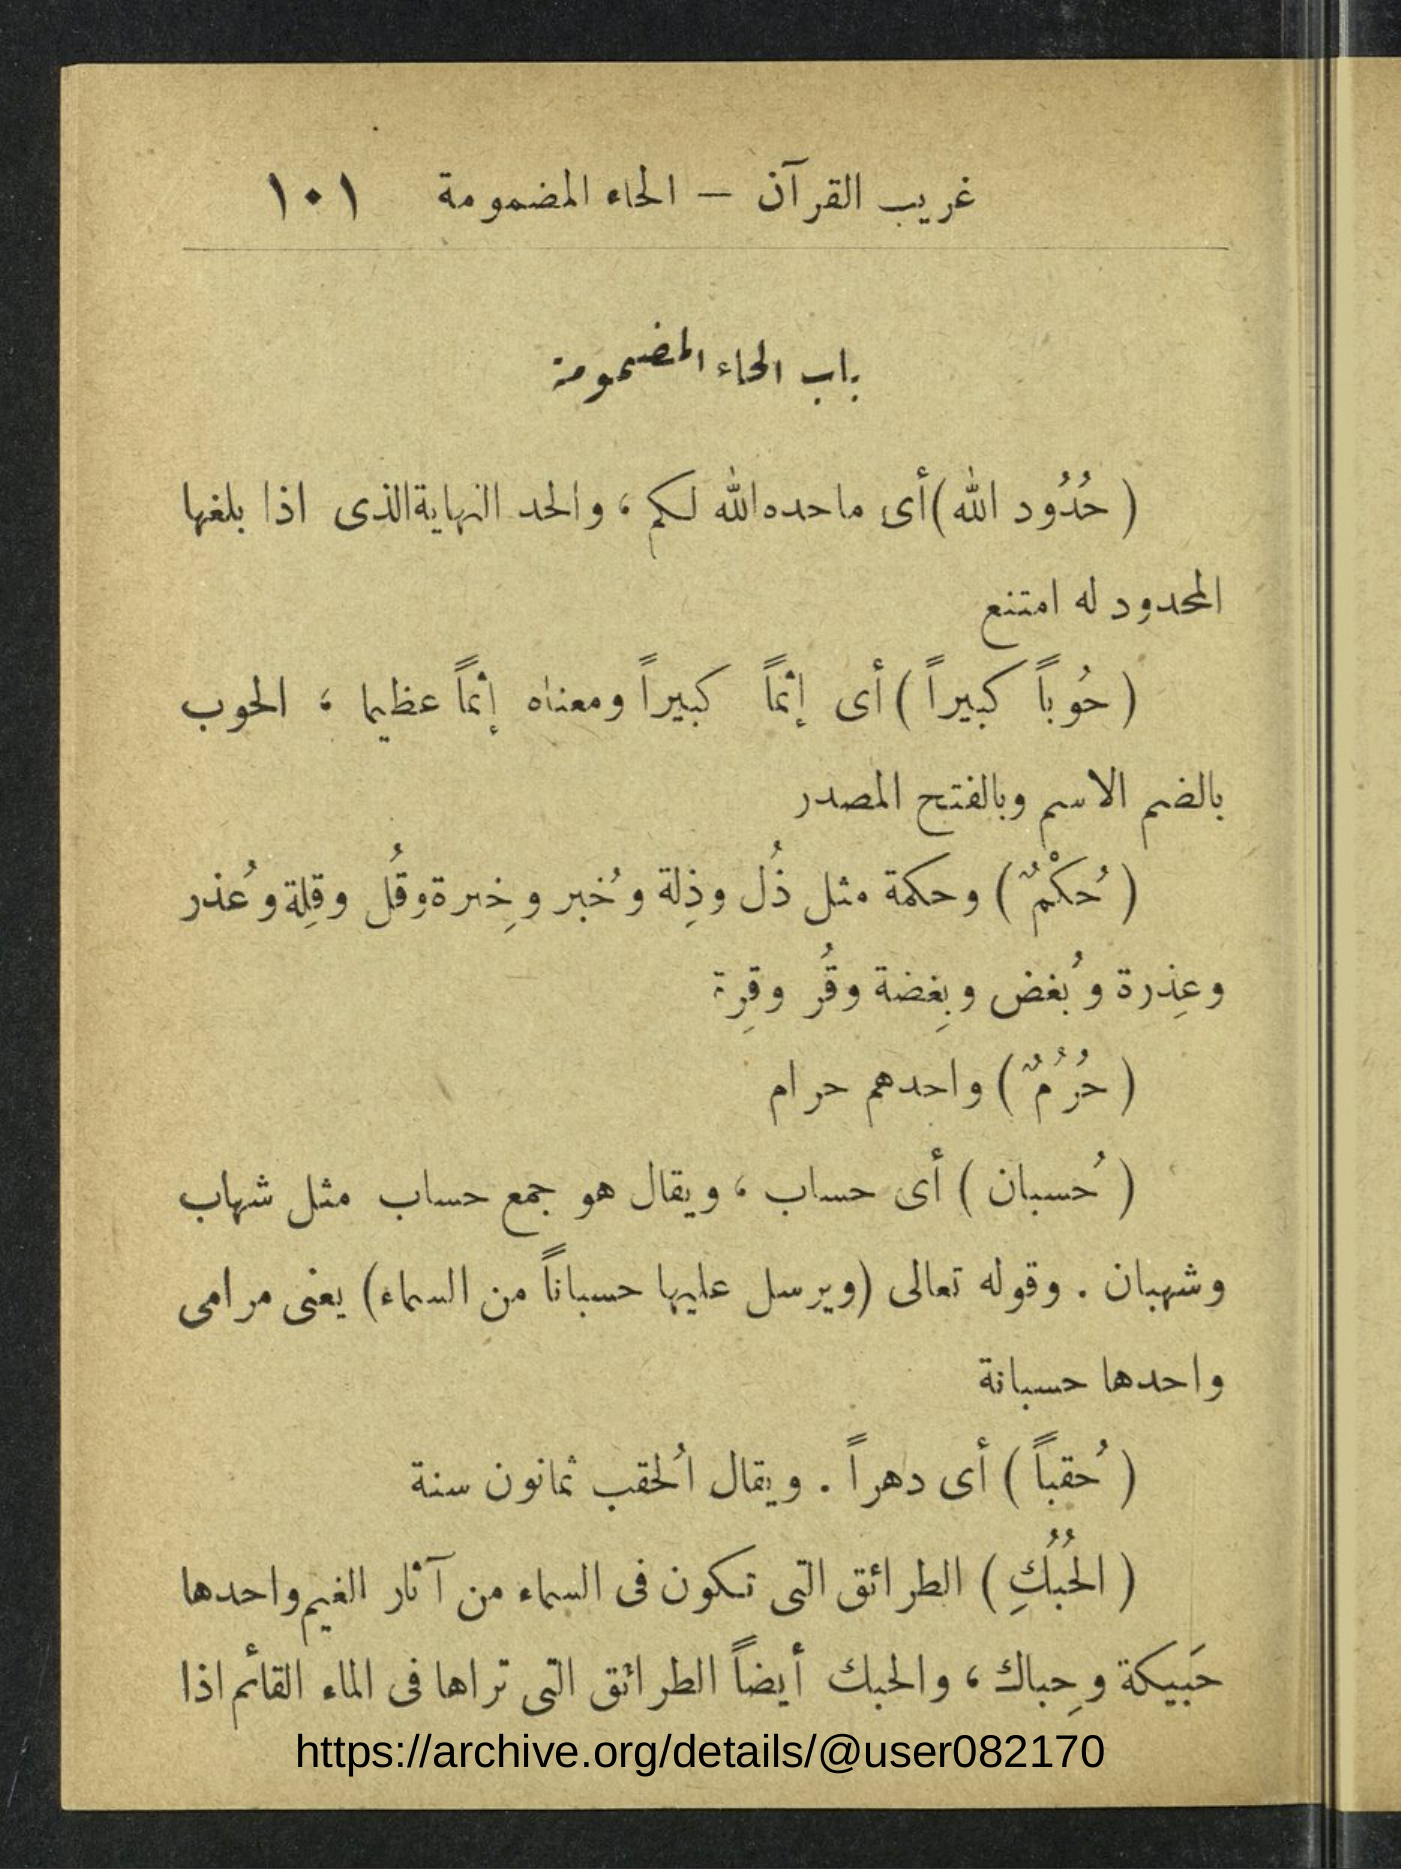 غريب القرآن — الحاء المضمومة ١٠١
باب الحاء المضمومة
( حُدُود الله ) أى ماحده الله لكم ، والحد النهاية الذى اذا بلغها
المحدود له امتنع
( حُوباً كبيراً ) أى إثماً كبيراً ومعناه إثماً عظيما ، الحوب
بالضم الاسم وبالفتح المصدر
( حُكْمٌ ) وحكمة مثل ذُل وذِلة وخُبر وخِبرة وقُل وقِلة وعُذر
وعِذرة وبُغض وبِغضة وقُر وقِرة
( حُرُمٌ ) واحدهم حرام
( حُسبان ) أى حساب ، ويقال هو جمع حساب مثل شهاب
وشهبان . وقوله تعالى (ويرسل عليها حسباناً من السماء) يعنى مرامى
واحدها حسبانة
( حُقباً ) أى دهراً . ويقال الحُقب ثمانون سنة
( الحُبُكِ ) الطرائق التى تكون فى السماء من آثار الغيم واحدها
حَبيكة وحِباك ، والحبك أيضاً الطرائق التى تراها فى الماء القائم اذا
https://archive.org/details/@user082170